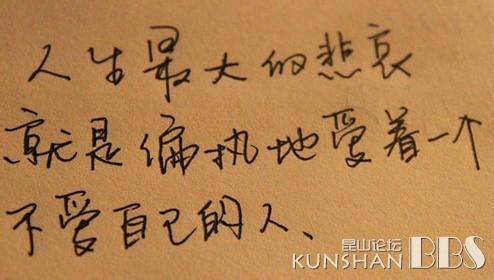 人生最大的悲哀
就是偏执地爱着一个
不爱自己的人、
昆山论坛
KUNSHAN BBS